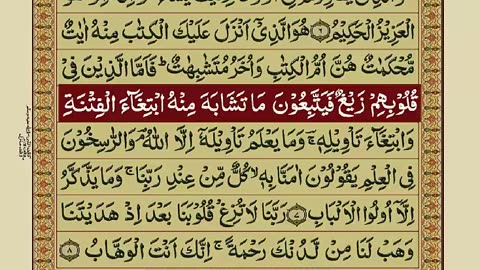 الْعَزِيْزُ الْحَكِيْمُ ﴿۶﴾ هُوَ الَّذِيْۤ اَنْزَلَ عَلَيْكَ الْكِتٰبَ مِنْهُ اٰيٰتٌ
مُّحْكَمٰتٌ هُنَّ اُمُّ الْكِتٰبِ وَاُخَرُ مُتَشٰبِهٰتٌ ؕ فَاَمَّا الَّذِيْنَ فِيْ
قُلُوْبِهِمْ زَيْغٌ فَيَتَّبِعُوْنَ مَا تَشَابَهَ مِنْهُ ابْتِغَآءَ الْفِتْنَةِ
وَابْتِغَآءَ تَاْوِيْلِهٖ ۚ وَمَا يَعْلَمُ تَاْوِيْلَهٗۤ اِلَّا اللّٰهُ ۘ وَالرّٰسِخُوْنَ
فِي الْعِلْمِ يَقُوْلُوْنَ اٰمَنَّا بِهٖ ۙ كُلٌّ مِّنْ عِنْدِ رَبِّنَا ۚ وَمَا يَذَّكَّرُ
اِلَّاۤ اُولُوا الْاَلْبَابِ ﴿۷﴾ رَبَّنَا لَا تُزِغْ قُلُوْبَنَا بَعْدَ اِذْ هَدَيْتَنَا
وَهَبْ لَنَا مِنْ لَّدُنْكَ رَحْمَةً ۚ اِنَّكَ اَنْتَ الْوَهَّابُ ﴿۸﴾